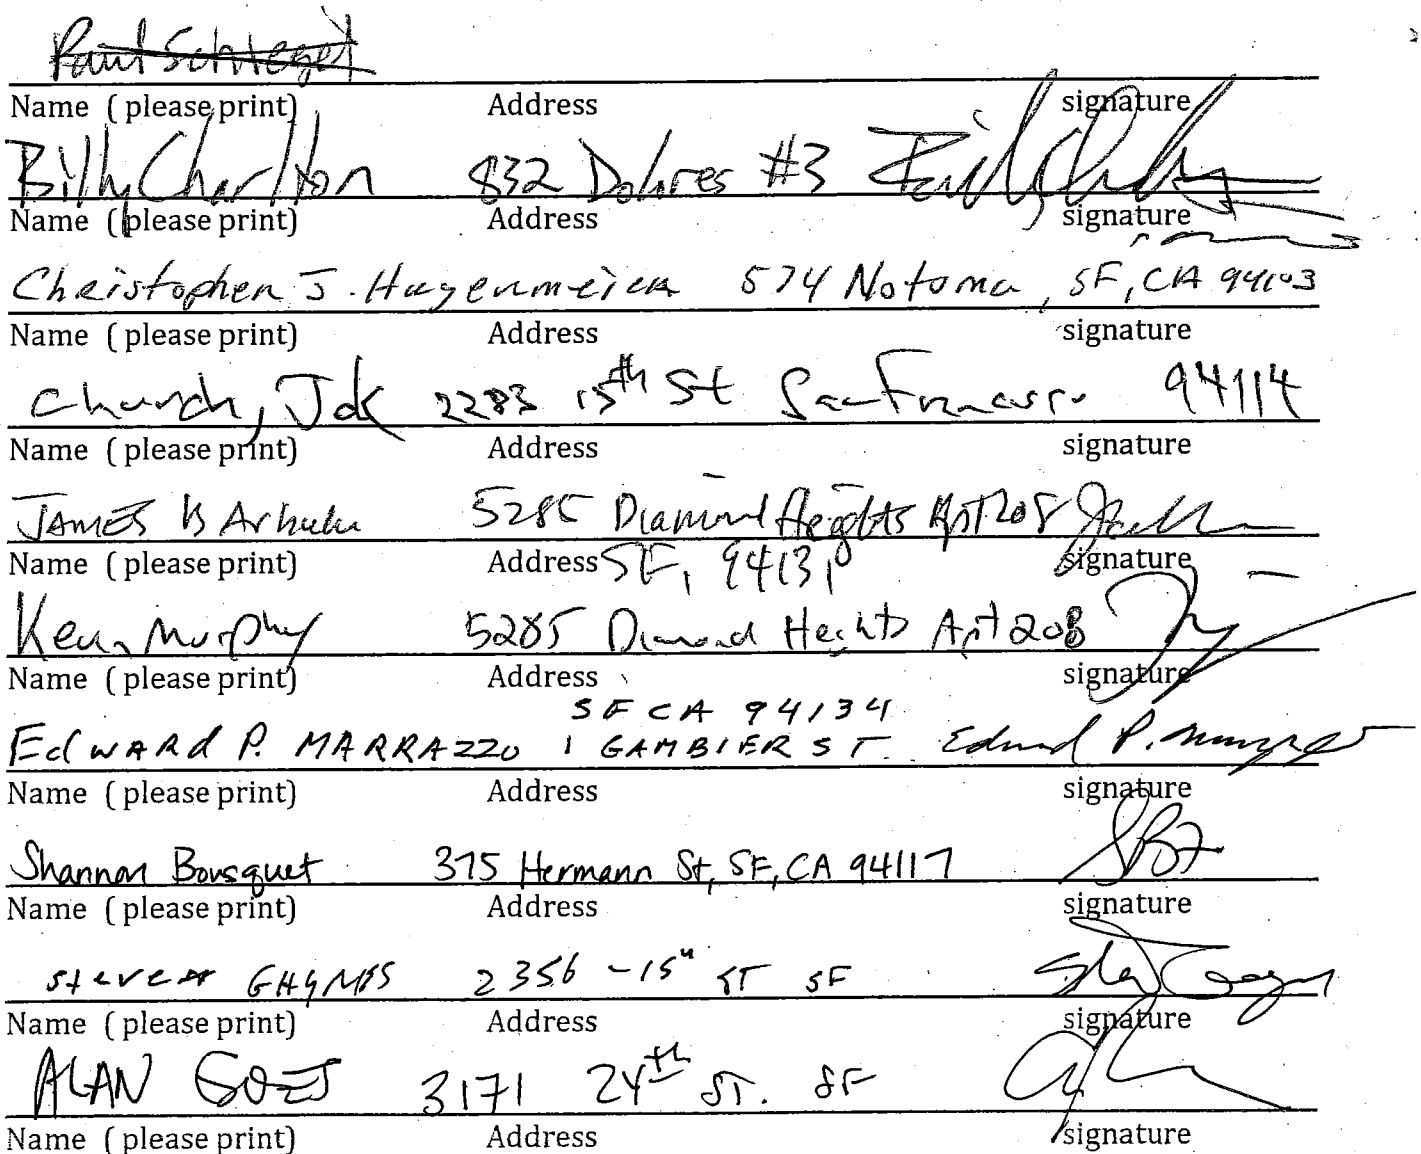 Paul Schlegel
Name ( please print) Address signature
Billy Charlton 832 Dolores #3
Name ( please print) Address signature
Christopher J. Hagenmeier 574 Natoma, SF, CA 94103
Name ( please print) Address signature
Church, 2283 15th St San Francisco 94114
Name ( please print) Address signature
JAMES B 5285 Diamond Heights Apt 208
Name ( please print) Address signature
SF, 94131
Murphy 5285 Diamond Heights Apt 208
Name ( please print) Address signature
SF CA 94134
EdWARd P. MARRAZZO 1 GAMBIER ST. Edward P.
Name ( please print) Address signature
Shannon Bousquet 375 Hermann St, SF, CA 94117
Name ( please print) Address signature
steven 2356 - 15th ST SF
Name ( please print) Address signature
ALAN 3171 24th ST. SF
Name ( please print) Address signature